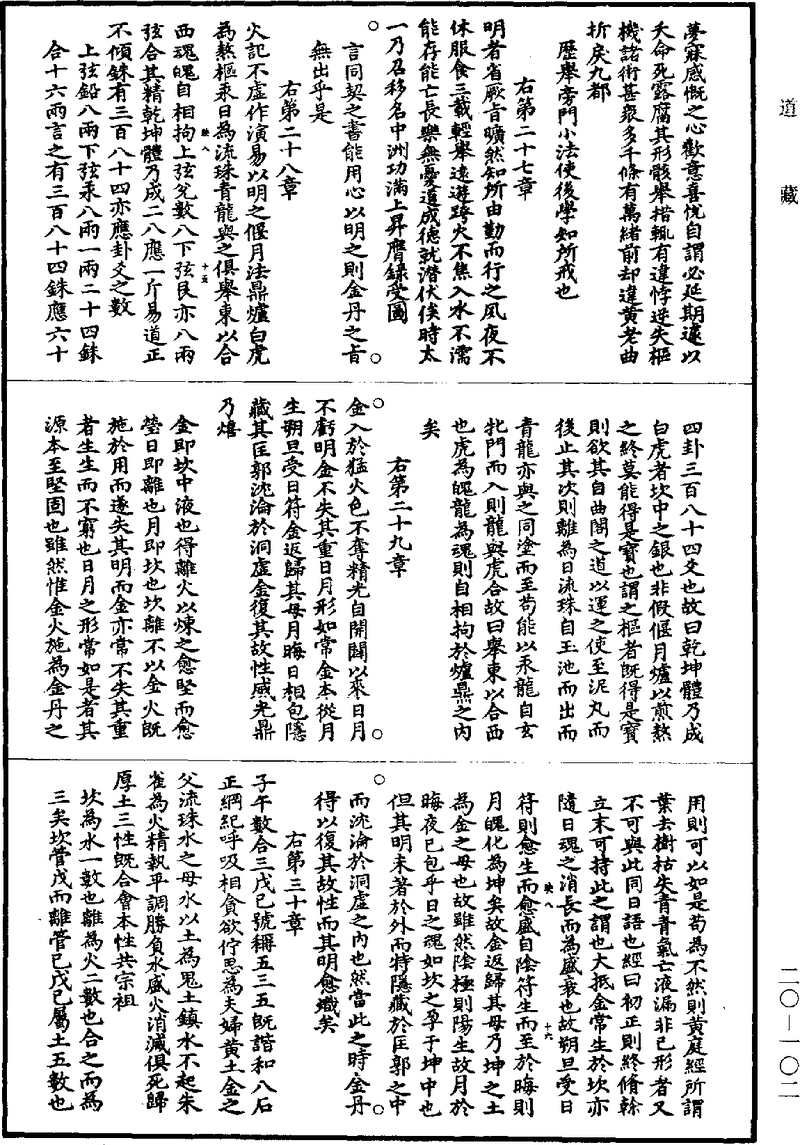 道藏
夢寐感慨之心歡意喜悅自謂必延期遽以
夭命死露腐其形骸舉措輒有違悖逆失樞
機諸術甚衆多千條有萬緒前却違黃老曲
折戾九都
歷舉旁門小法使後學知所戒也
右第二十七章
明者省厥旨曠然知所由勤而行之夙夜不
休服食三載輕舉遠遊跨火不焦入水不濡
能存能亡長樂無憂道成德就潛伏俟時太
一乃召移名中洲功滿上昇膺籙受圖
言同契之書能用心以明之則金丹之旨
無出乎是
右第二十八章
火記不虛作演易以明之偃月法鼎爐白虎
為熬樞汞日為流珠青龍與之俱舉東以合
西魂魄自相拘上弦兌數八下弦艮亦八兩
弦合其精乾坤體乃成二八應一斤易道正
不傾銖有三百八十四亦應卦爻之數
上弦鉛八兩下弦汞八兩一兩二十四銖
合十六兩言之有三百八十四銖應六十
四卦三百八十四爻也故曰乾坤體乃成
白虎者坎中之銀也非假偃月爐以煎熬
之終莫能得是寶也謂之樞者既得是寶
則欲其自曲閣之道以運之使至泥丸而
後止其次則離為日流珠自玉池而出而
青龍亦與之同塗而至苟能以汞龍自玄
牝門而入則龍與虎合故曰舉東以合西
也虎為魄龍為魂則自相拘於爐鼎之內
矣
右第二十九章
金入於猛火色不奪精光自開闢以來日月
不虧明金不失其重日月形如常金本從月
生朔旦受日符金返歸其母月晦日相包隱
藏其匡郭沈淪於洞虛金復其故性威光鼎
乃熺
金即坎中液也得離火以煉之愈堅而愈
瑩日即離也月即坎也坎離不以金火既
施於用而遂失其明而金亦常不失其重
者生生而不窮也日月之形常如是者其
源本至堅固也雖然惟金火施為金丹之
用則可以如是苟為不然則黃庭經所謂
葉去樹枯失青青氣亡液漏非己形者又
不可與此同日語也經曰初正則終脩榦
立末可持此之謂也大抵金常生於坎亦
隨日魂之消長而為盛衰也故朔旦受日
符則愈生而愈盛自陰符生而至於晦則
月魄化為坤矣故金返歸其母乃坤之土
為金之母也故雖然陰極則陽生故月於
晦夜已包乎日之魂如坎之孕于坤中也
但其明未著於外而特隱藏於匡郭之中
而沈淪於洞虛之內也然當此之時金丹
得以復其故性而其明愈熾矣
右第三十章
子午數合三戊己號稱五三五既諧和八石
正綱紀呼吸相貪欲佇思為夫婦黃土金之
父流珠水之母水以土為鬼土鎮水不起朱
雀為火精執平調勝負水盛火消滅俱死歸
厚土三性既合會本性共宗祖
坎為水一數也離為火二數也合之而為
三矣坎管戊而離管己戊己屬土五數也
二〇—一〇二